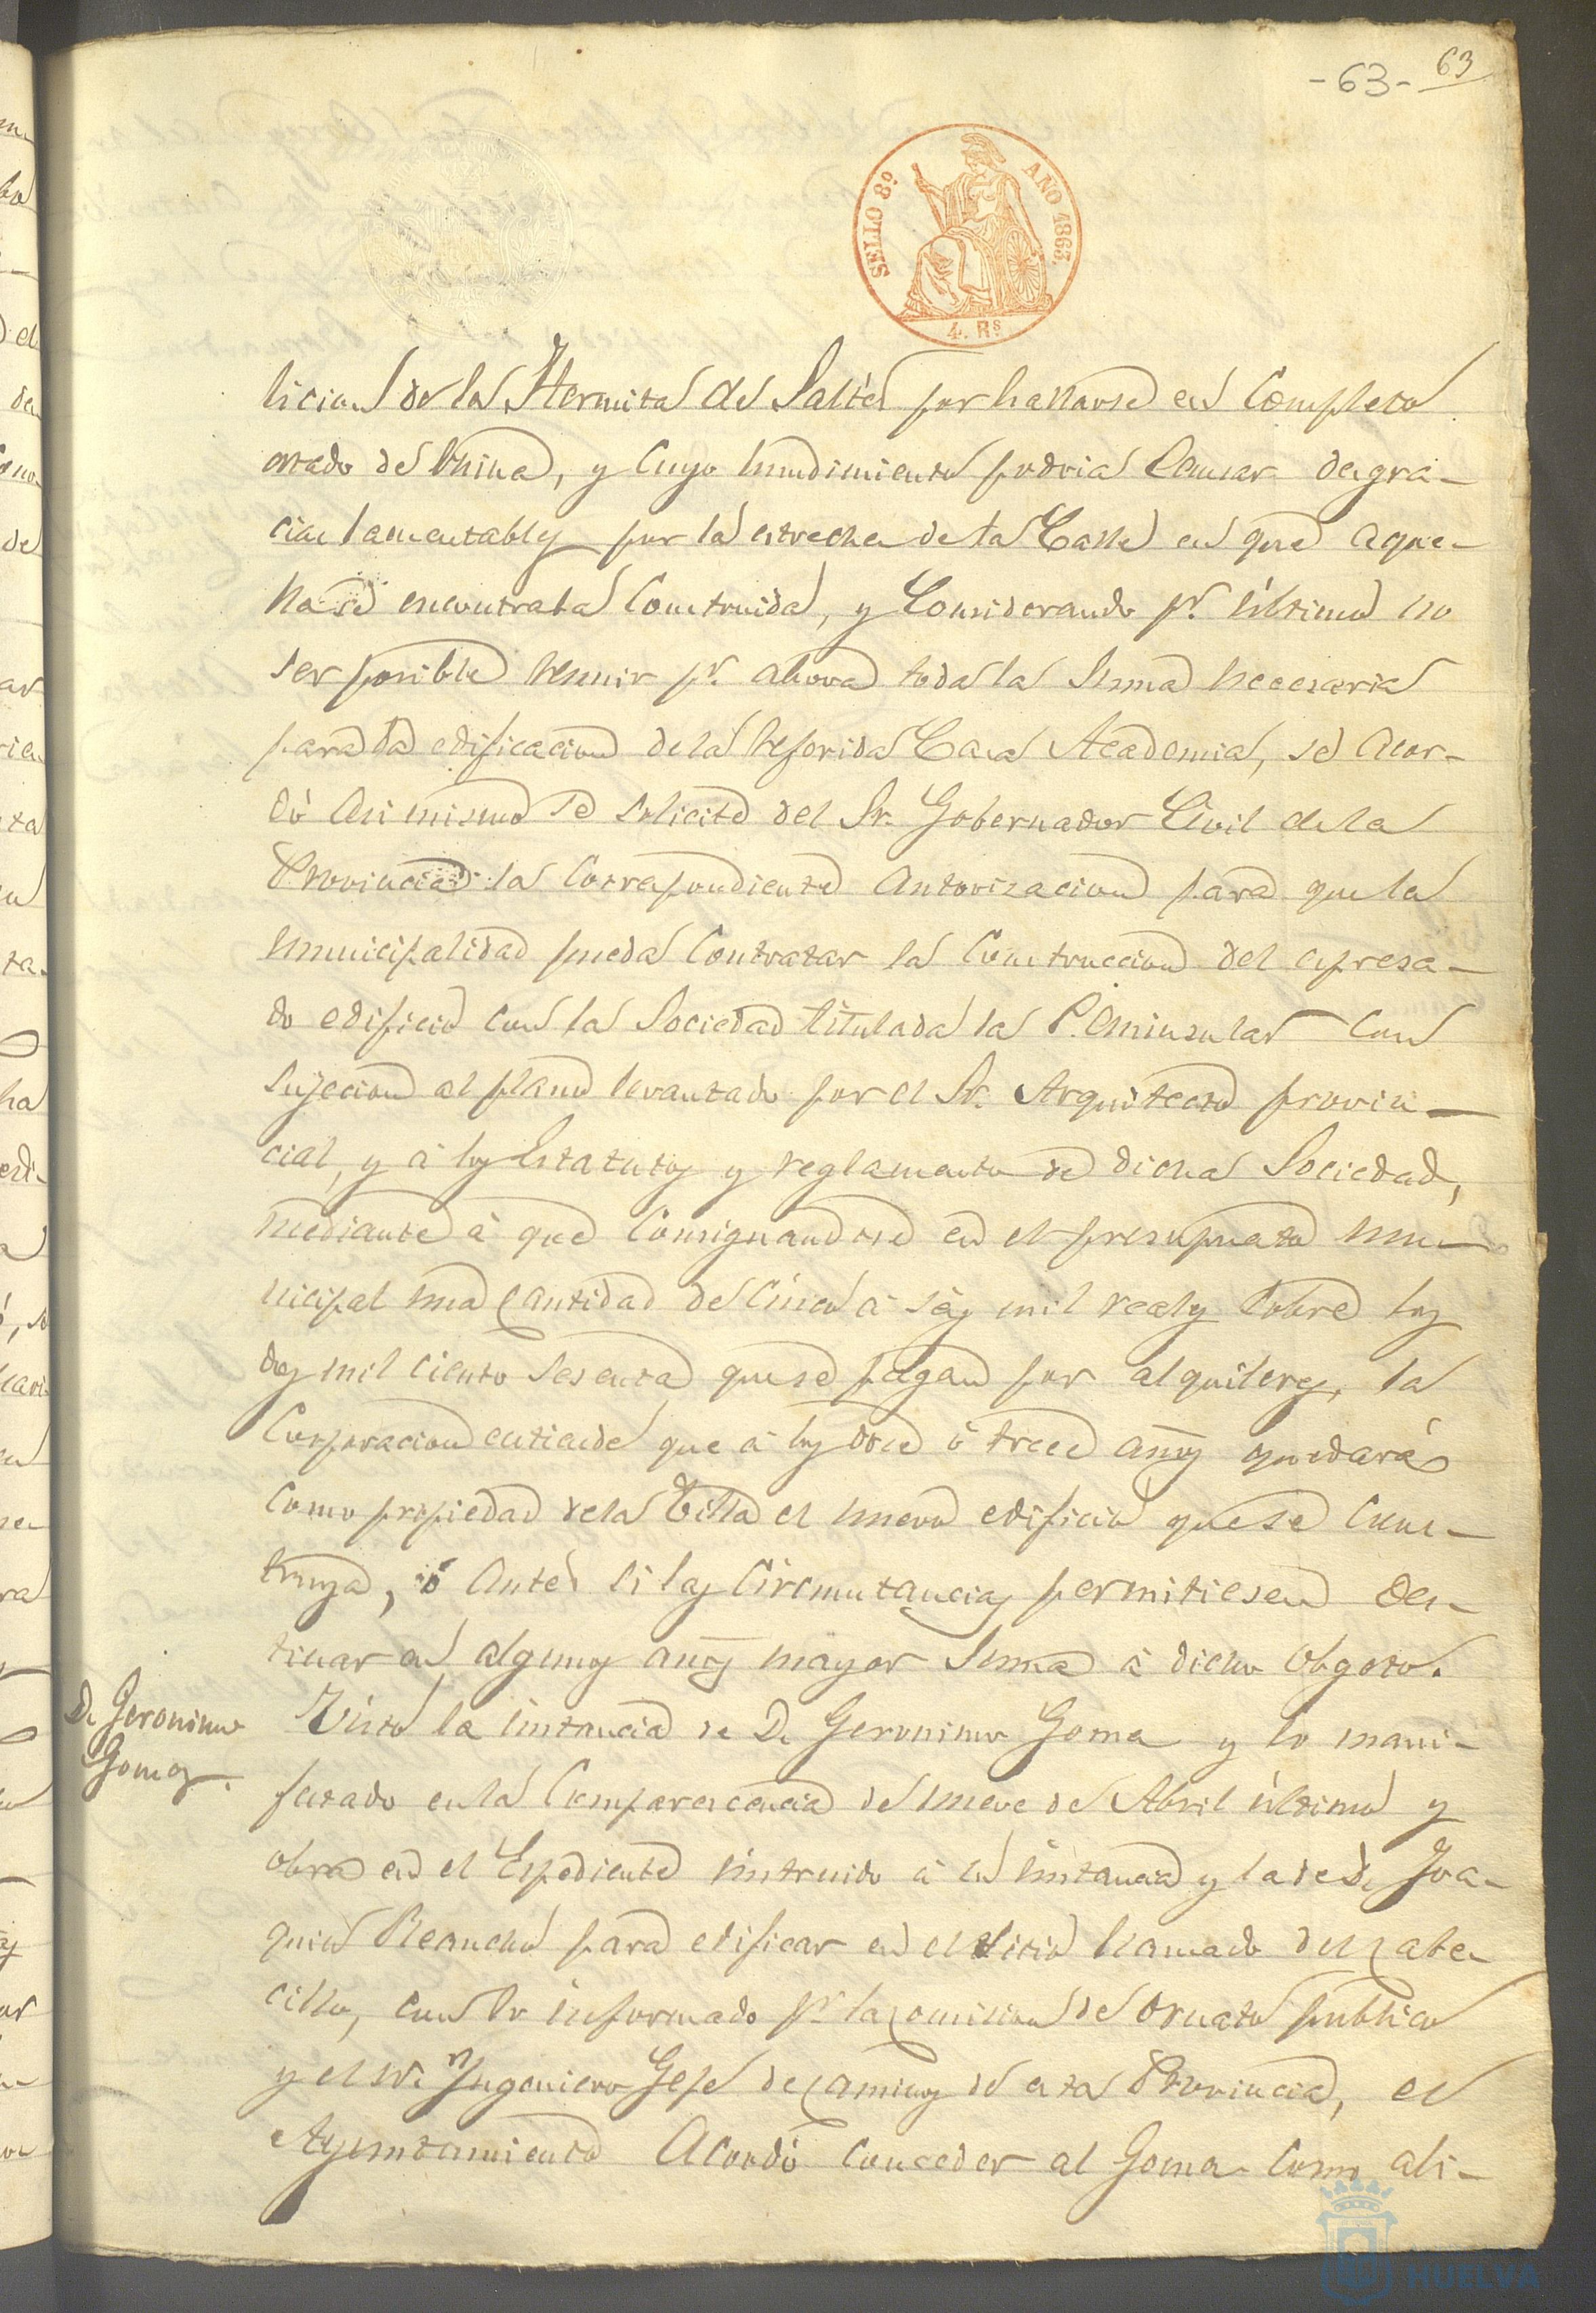 -63- 63
SELLO 8º AÑO 1863.
4. Rs
licion de la Hermita de Saltés por hallarse en completo
estado de ruina, y cuyo hundimiento podria causar desgra-
cias lamentables por la estrechez de la Calle en que aque-
lla se encontraba construida, y considerando pr. último no
ser posible reunir pr. ahora toda la suma necesaria
para la edificacion de la referida Casa Academia, se acor-
dó asi mismo se solicite del Sr. Gobernador Civil de la
Provincia la correspondiente autorizacion para que la
municipalidad pueda contratar la construccion del espresa-
do edificio con la Sociedad titulada la Peninsular con
sujecion al plano levantado por el Sr. Arquitecto provin-
cial, y á los Estatutos y reglamento de dicha Sociedad,
mediante á que consignandose en el presupuesto mu-
nicipal una cantidad de cinco á seis mil reales sobre los
dos mil ciento sesenta que se pagan por alquileres, la
Corporacion entiende que á los doce ó trece años quedará
como propiedad de la Villa el nuevo edificio que se cons-
truya, ó antes si las circunstancias permitiesen des-
tinar en algunos años mayor suma á dicho obgeto.
D. Geronimo
Gomez.
Vista la instancia de D. Geronimo Gomez y lo mani-
festado en la comparecencia de nueve de Abril último y
obra en el Espediente instruido á su instancia y la de D. Joa-
quin para edificar en el sitio llamado del Cabe-
cillo, con lo informado pr. la Comision de Ornato publico
y el Sr. Ingeniero Gefe de Caminos de esta Provincia, el
Ayuntamiento acordó conceder al Gomez como ali-
HUELVA